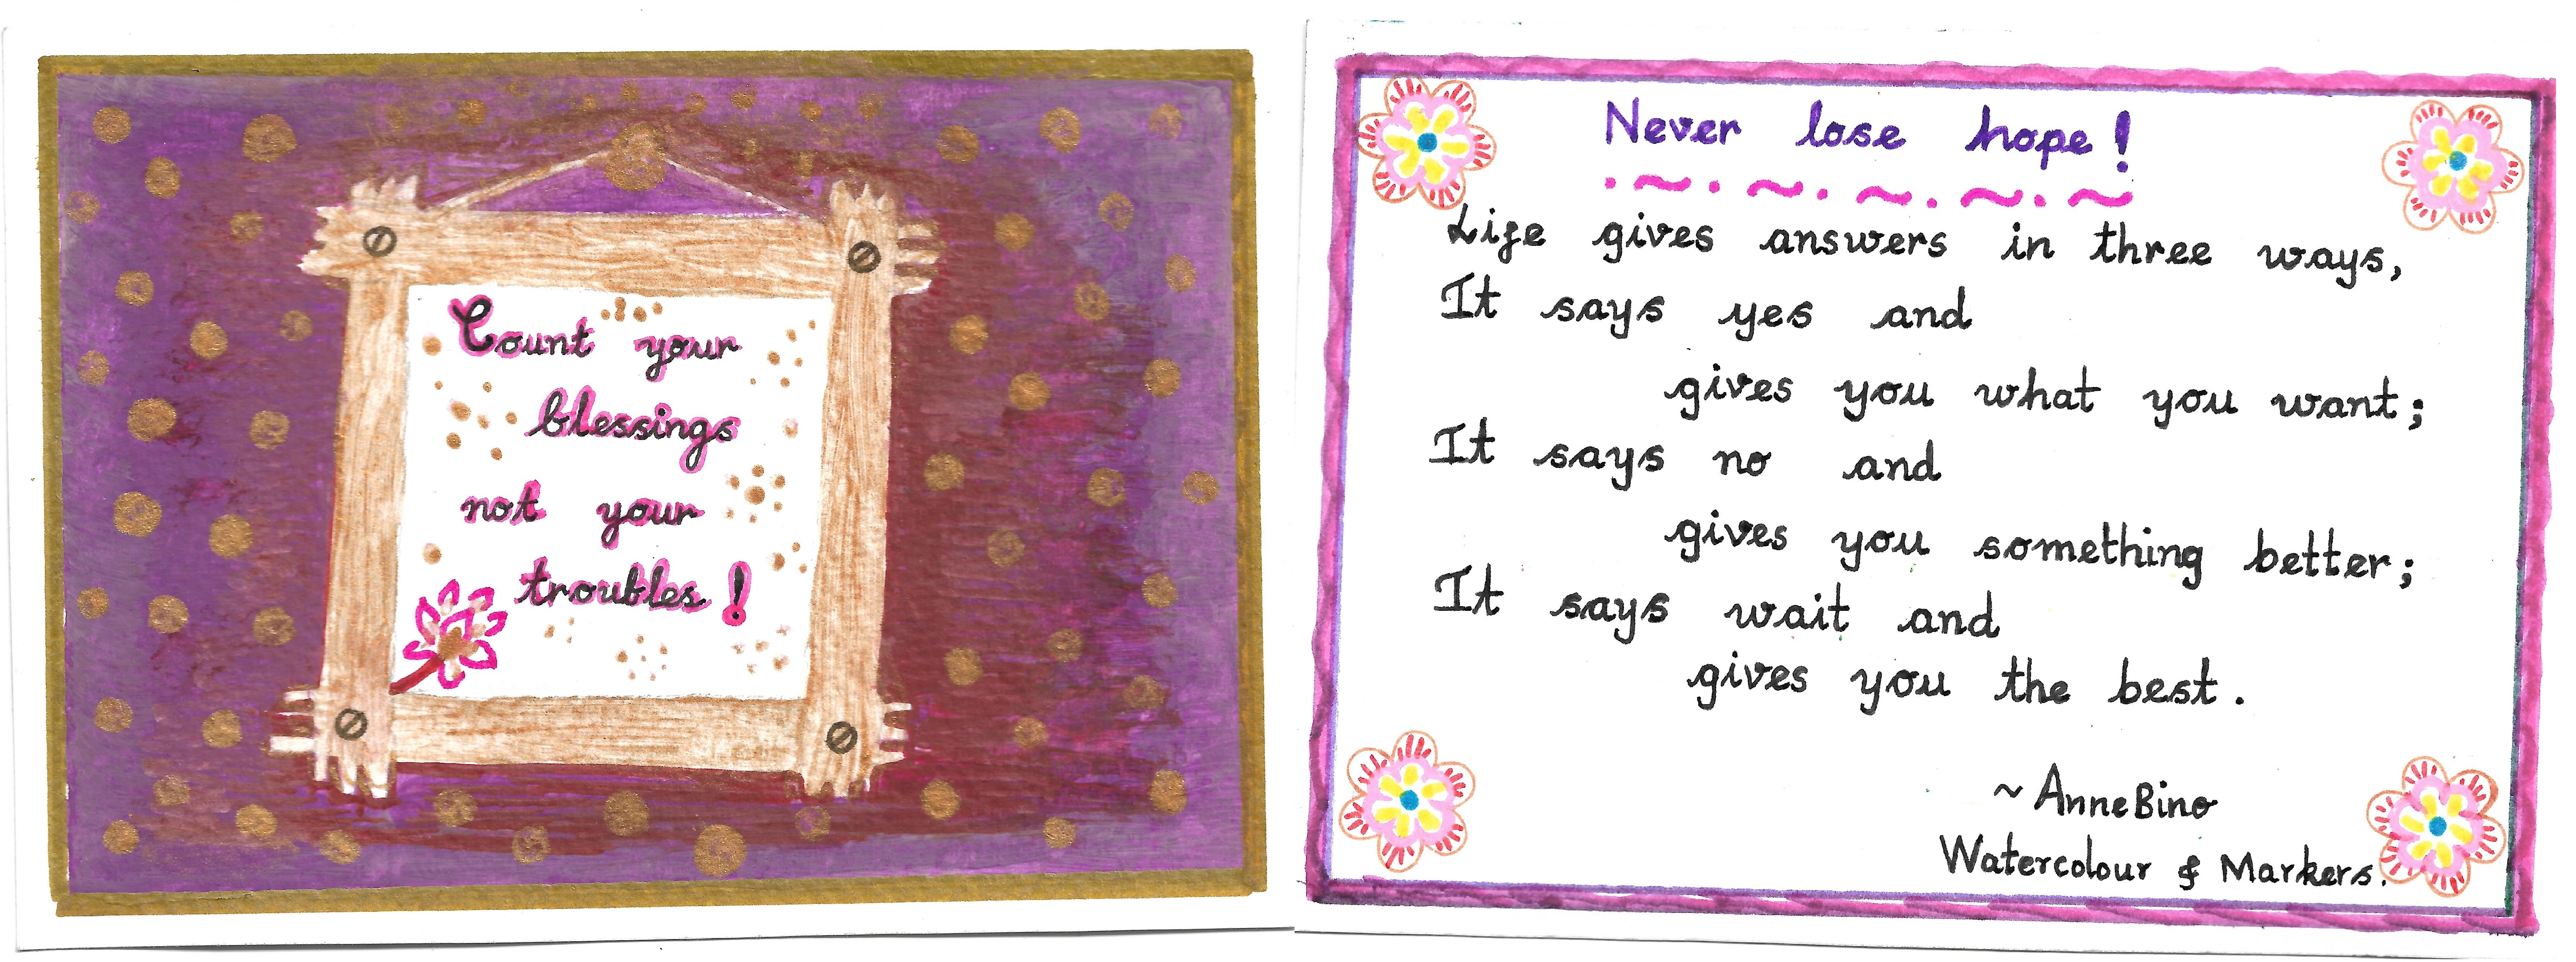 Count your
blessings
not your
troubles!
Never lose hope!
Life gives answers in three ways,
It says yes and
gives you what you want;
It says no and
gives you something better;
It says wait and
gives you the best.
~ Anne Bino
Watercolour & Markers.